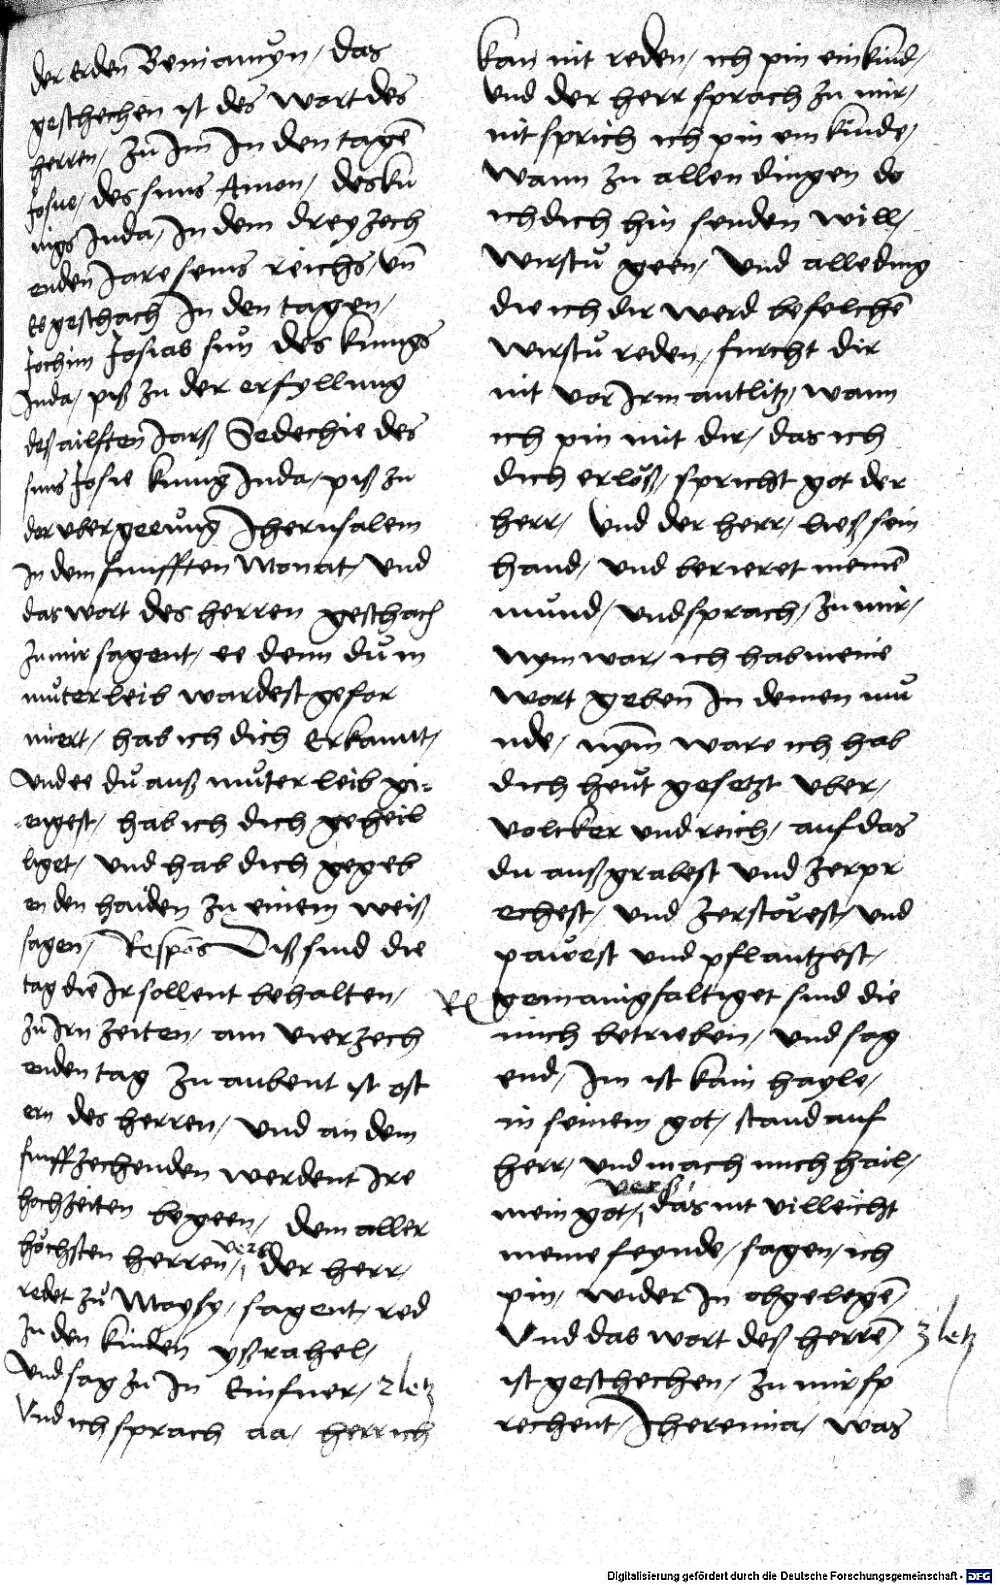 der erden Beniamyn, das
geschechen ist des wort des
herren, zu Im In den tagē
Josue, des suns Amon, des ku
nigs Juda, In dem dreyzech
enden Jare seins reichs, vn̄
es geschach In den tagen,
Jochim Josias sun des kunigs
Juda, piß zu der erfyllung
deß ailften Jarß Sedechie des
suns Josie kunig Juda, piß zu
der vbergeeung Jherusalem
In dem funfften Monat, Vnd
das wort des herren geschach
zu mir sagent, ee denn du in
muter leib wardest gefor
miert, hab ich dich Erkannt,
Vnd ee du auß muter leib gi-
engest, hab ich dich geheil
liget, vnd hab dich gegeb
en den haiden zu einem weiß
sagen, Respōs Diß sind die
tag die Ir sollent behalten,
zu Irn zeiten, am vierzech
enden tag zu aubent ist ost
ern des herren, vnd an dem
funffzechenden werdent Ire
hochzeiten begeen, dem aller
höchsten herren, vers der herr,
redet zu Moysy, sagent, red
zu den kinden yßrahel,
Vnd sag zu In Ein fuer, 2 letz
Vnd ich sprach aa, herr ich
kan nit reden, ich pin ein kind,
vnd der herr sprach zu mir,
nit sprich ich pin ein kinde,
wann zu allen dingen do
ich dich hin senden will,
wirstu geen, Vnd alle ding
die ich dir werd befelchē
wirstu reden, furcht dir
nit vor Irm antlitz, wann
ich pin mit dir, das ich
dich erlöß, spricht got der
herr, Vnd der herr, ließ sein
hand, vnd berieret meinē
mund, vnd sprach, zu mir,
nym war, ich hab meine
wort geben In deinen mu
nde, nym ware ich hab
dich heut gesetzt vber,
volcker vnd reich, auf das
du außgrabest vnd zerpr
echest, vnd zerstörest, vnd
pawest vnd pflantzest,
Re gemanigfaltiget sind die
mich betrieben, vnd sag
end, Im ist kain hayle,
in seinem got, stand auf
herr, vnd mach mich hail,
mein got, vers das nit villeicht
meine feynde, sagen, ich
pin, wider In obgelegē,
Vnd das wort deß herrē, 3 letz
ist geschechen, zu mir sp
rechent, Jheremia, was